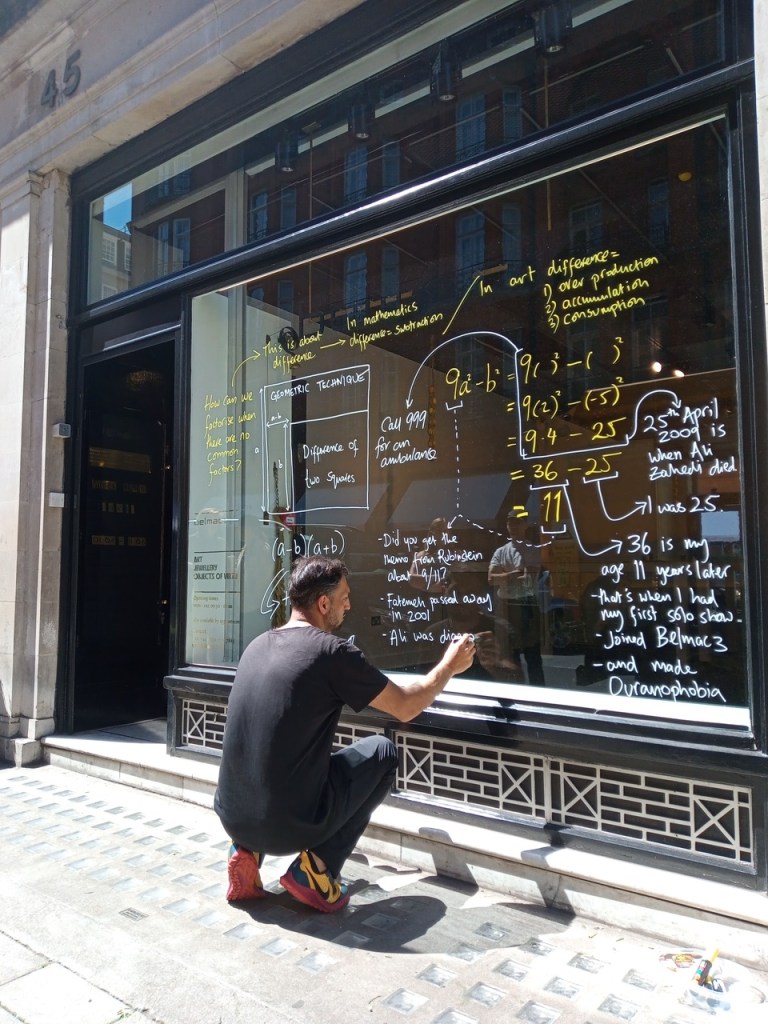 45
In art difference =
1) over production
2) accumulation
3) consumption
In mathematics
difference = subtraction
This is about
difference
How can we
factorise when
there are no
common
factors?
GEOMETRIC TECHNIQUE
a-b
a
b
Difference of
two squares
(a-b)(a+b)
Call 999
for an
ambulance
9a²-b² = 9( )² - ( )²
= 9(2)² - (-5)²
= 9·4 - 25
= 36 - 25
= 11
25th April
2009 is
when Ali
Zahedi died
I was 25.
36 is my
age 11 years later
- that's when I had
my first solo show.
- Joined Belmac3
- and made
Ouranophobia
- Did you get the
memo from Rubinstein
about 9/11?
- Fatemeh passed away
in 2001
- Ali was diag
belmac
ART
JEWELLERY
OBJECTS OF